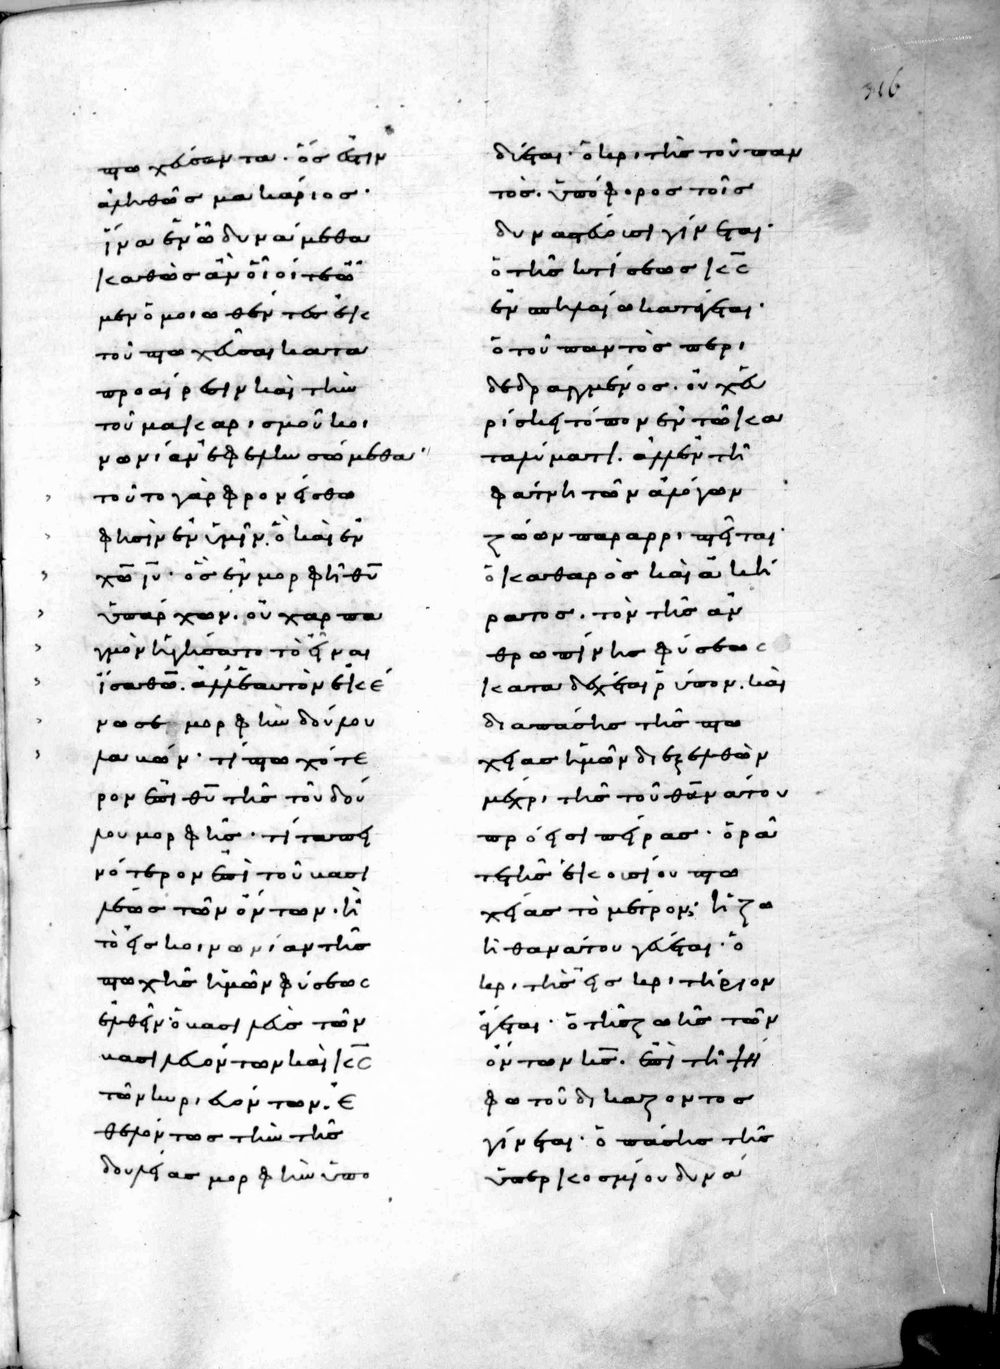 316
πτωχεύσαντα· ὅς ἐστιν
ἀληθῶς μακάριος·
ἵνα ἐν ὧ δυνάμεθα
καθὼς ἂν οἷοί τε ὦ
μεν ὁμοιωθέντες ἐκ
τοῦ πτωχεῦσαι κατα
προαίρεσιν καὶ τὴν
τοῦ μακαρισμοῦ κοι
νωνίαν ἐφελκυσώμεθα·
τοῦτο γὰρ φρονείσθω
φησὶν ἐν ὑμῖν. ὃ καὶ ἐν
χῶ ιῦ· ὃς ἐν μορφῆ θῦ
ὑπάρχων. οὐχ ἁρπα
γμὸν ἡγήσατο τὸ εἶναι
ἴσα θῶ. ἀλλ' ἑαυτὸν ἐκέ
νωσε μορφὴν δούλου
λαβών· τί πτωχότε
ρον ἐπὶ θῦ τῆς τοῦ δού
λου μορφῆς· τί ταπει
νότερον ἐπὶ τοῦ βασι
λέως τῶν ὄντων· ἢ
τὸ εἰς κοινωνίαν τῆς
πτωχῆς ἡμῶν φύσεως
ἐλθεῖν· ὁ βασιλεὺς τῶν
βασιλευόντων καὶ κς
τῶν κυριευόντων. ἐ
θελόντως τὴν τῆς
δουλείας μορφὴν ὑπο
δύεται· ὁ κριτὴς τοῦ παν
τὸς. ὑπόφορος τοῖς
δυναστεύουσι γίνεται·
ὁ τῆς κτίσεως κς
ἐν σπηλαίω κατάγεται·
ὁ τοῦ παντὸς περι
δεδραγμένος. οὐχ εὑ
ρίσκει τόπον ἐν τῶ κα
ταλύματι. ἀλλ' ἐν τῆ
φάτνη τῶν ἀλόγων
ζώων παραρριπτεῖται·
ὁ καθαρὸς καὶ ἀκή
ρατος. τὸν τῆς ἀν
θρωπίνης φύσεως
καταδέχεται ῥύπον. καὶ
διαπάσης τῆς πτω
χείας ἡμῶν διεξελθὼν
μέχρι τῆς τοῦ θανάτου
πρόεισι πείρας· ὁρᾶ
τε τῆς ἑκουσίου πτω
χείας τὸ μέτρον; ἡ ζω
ὴ θανάτου γεύεται· ὁ
κριτὴς εἰς κριτήριον
ἄγεται· ὁ τῆς ζωῆς τῶν
ὄντων κς. ἐπὶ τῆ ψή
φω τοῦ δικάζοντος
γίνεται· ὁ πάσης τῆς
ὑπερκοσμίου δυνά